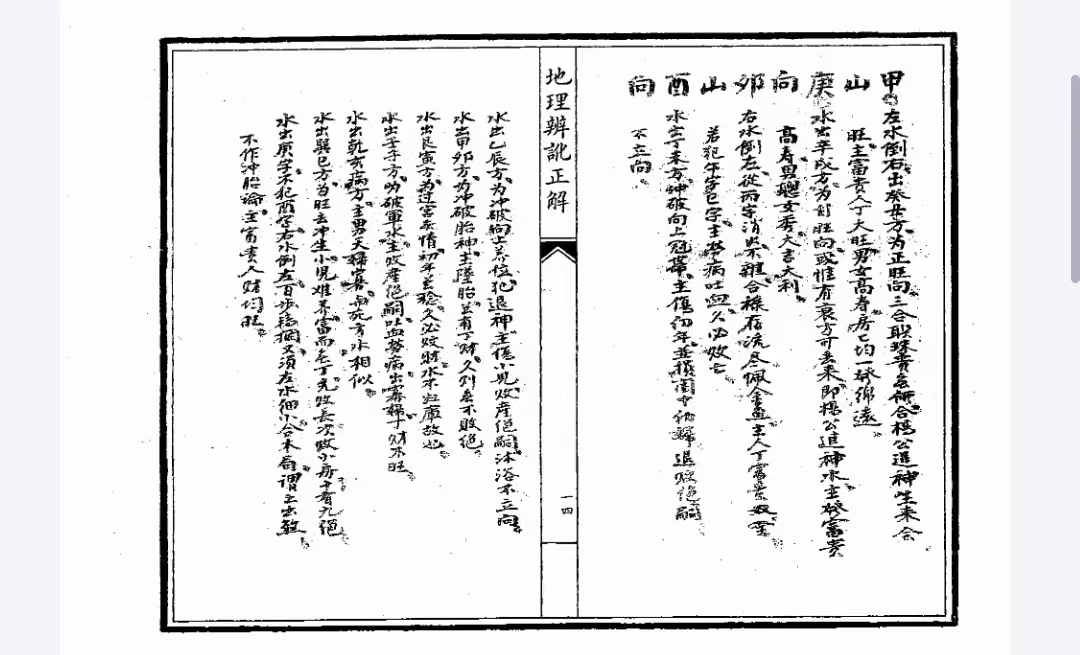 甲山庚向
卯山酉向
左水倒右出癸丑方為正旺向三合聯珠貴無價合楊公進神生來會
旺主富貴人丁大旺男女高壽房房均一發綿遠
水出辛戌方為自旺向或惟有衰方可去來即楊公進神水主發富貴
高壽男聰女秀大吉大利
右水倒左從丙字消出不雜合祿存流盡佩金魚主人丁富貴
若犯午字巳字主癆病吐血久必敗
水出丁未方冲破向上冠帶主傷幼年並損閨中幼婦退敗絕嗣
不立向
地理辨訛正解
一四
水出乙辰方為冲破向上養位犯退神主傷小兒敗產絕嗣沐浴不立向
水出甲卯方為冲破胎神主墜胎並有丁財久則亦不敗絕
水出艮寅方為過宮無情初年並發久必敗將水不归庫故也
水出壬子方為破軍水主敗產絕嗣吐血癆病出寡婦丁財不旺
水出乾亥病方主男夭婦寡與死方水相似
水出巽巳方為旺去冲生小兒難養富而無丁先敗長次敗小房十有九絕
水出庚字不犯酉字右水倒左百步轉攔又須左水細小合本局謂之出煞
不作冲胎論主富貴人財均旺